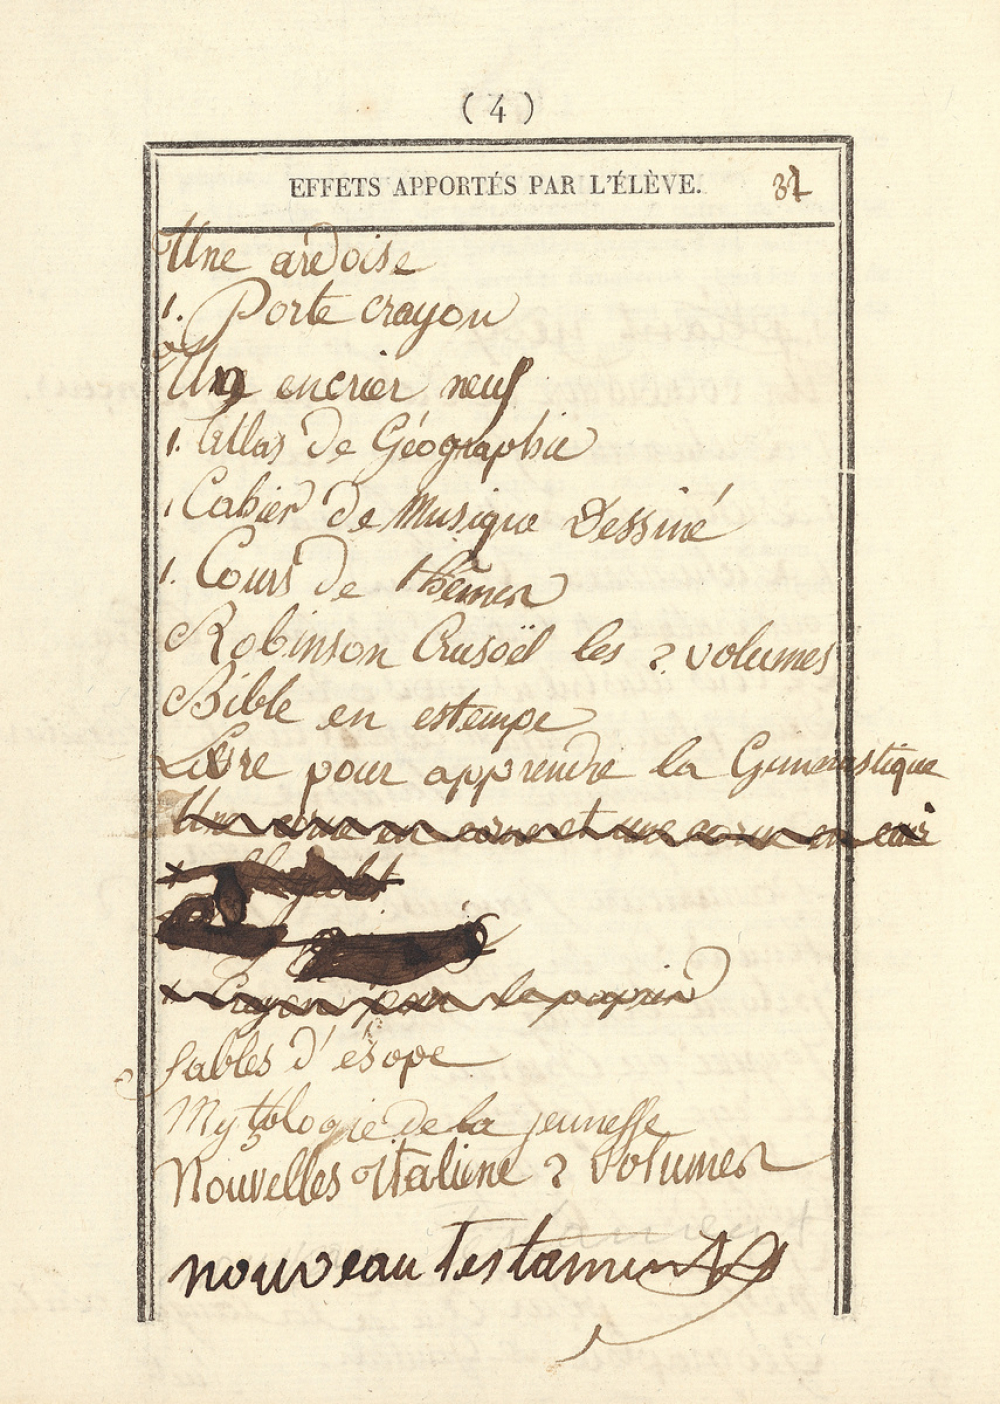 ( 4 )
EFFETS APPORTÉS PAR L'ÉLÈVE. 37
Une ardoise
1. Porte crayon
Un encrier neuf
1. Atlas de Géographie
1 Cahier de Musique Dessiné
1. Cours de thêmes
Robinson Crusoël les 2 volumes
Bible en estempe
Livre pour apprendre la Gimnastique
Une corne et une en cuir
Crayon pour le papier
fables d'ésope
Mythologie de la jeunesse
Nouvelles italiene 2 volumes
nouveau Testament